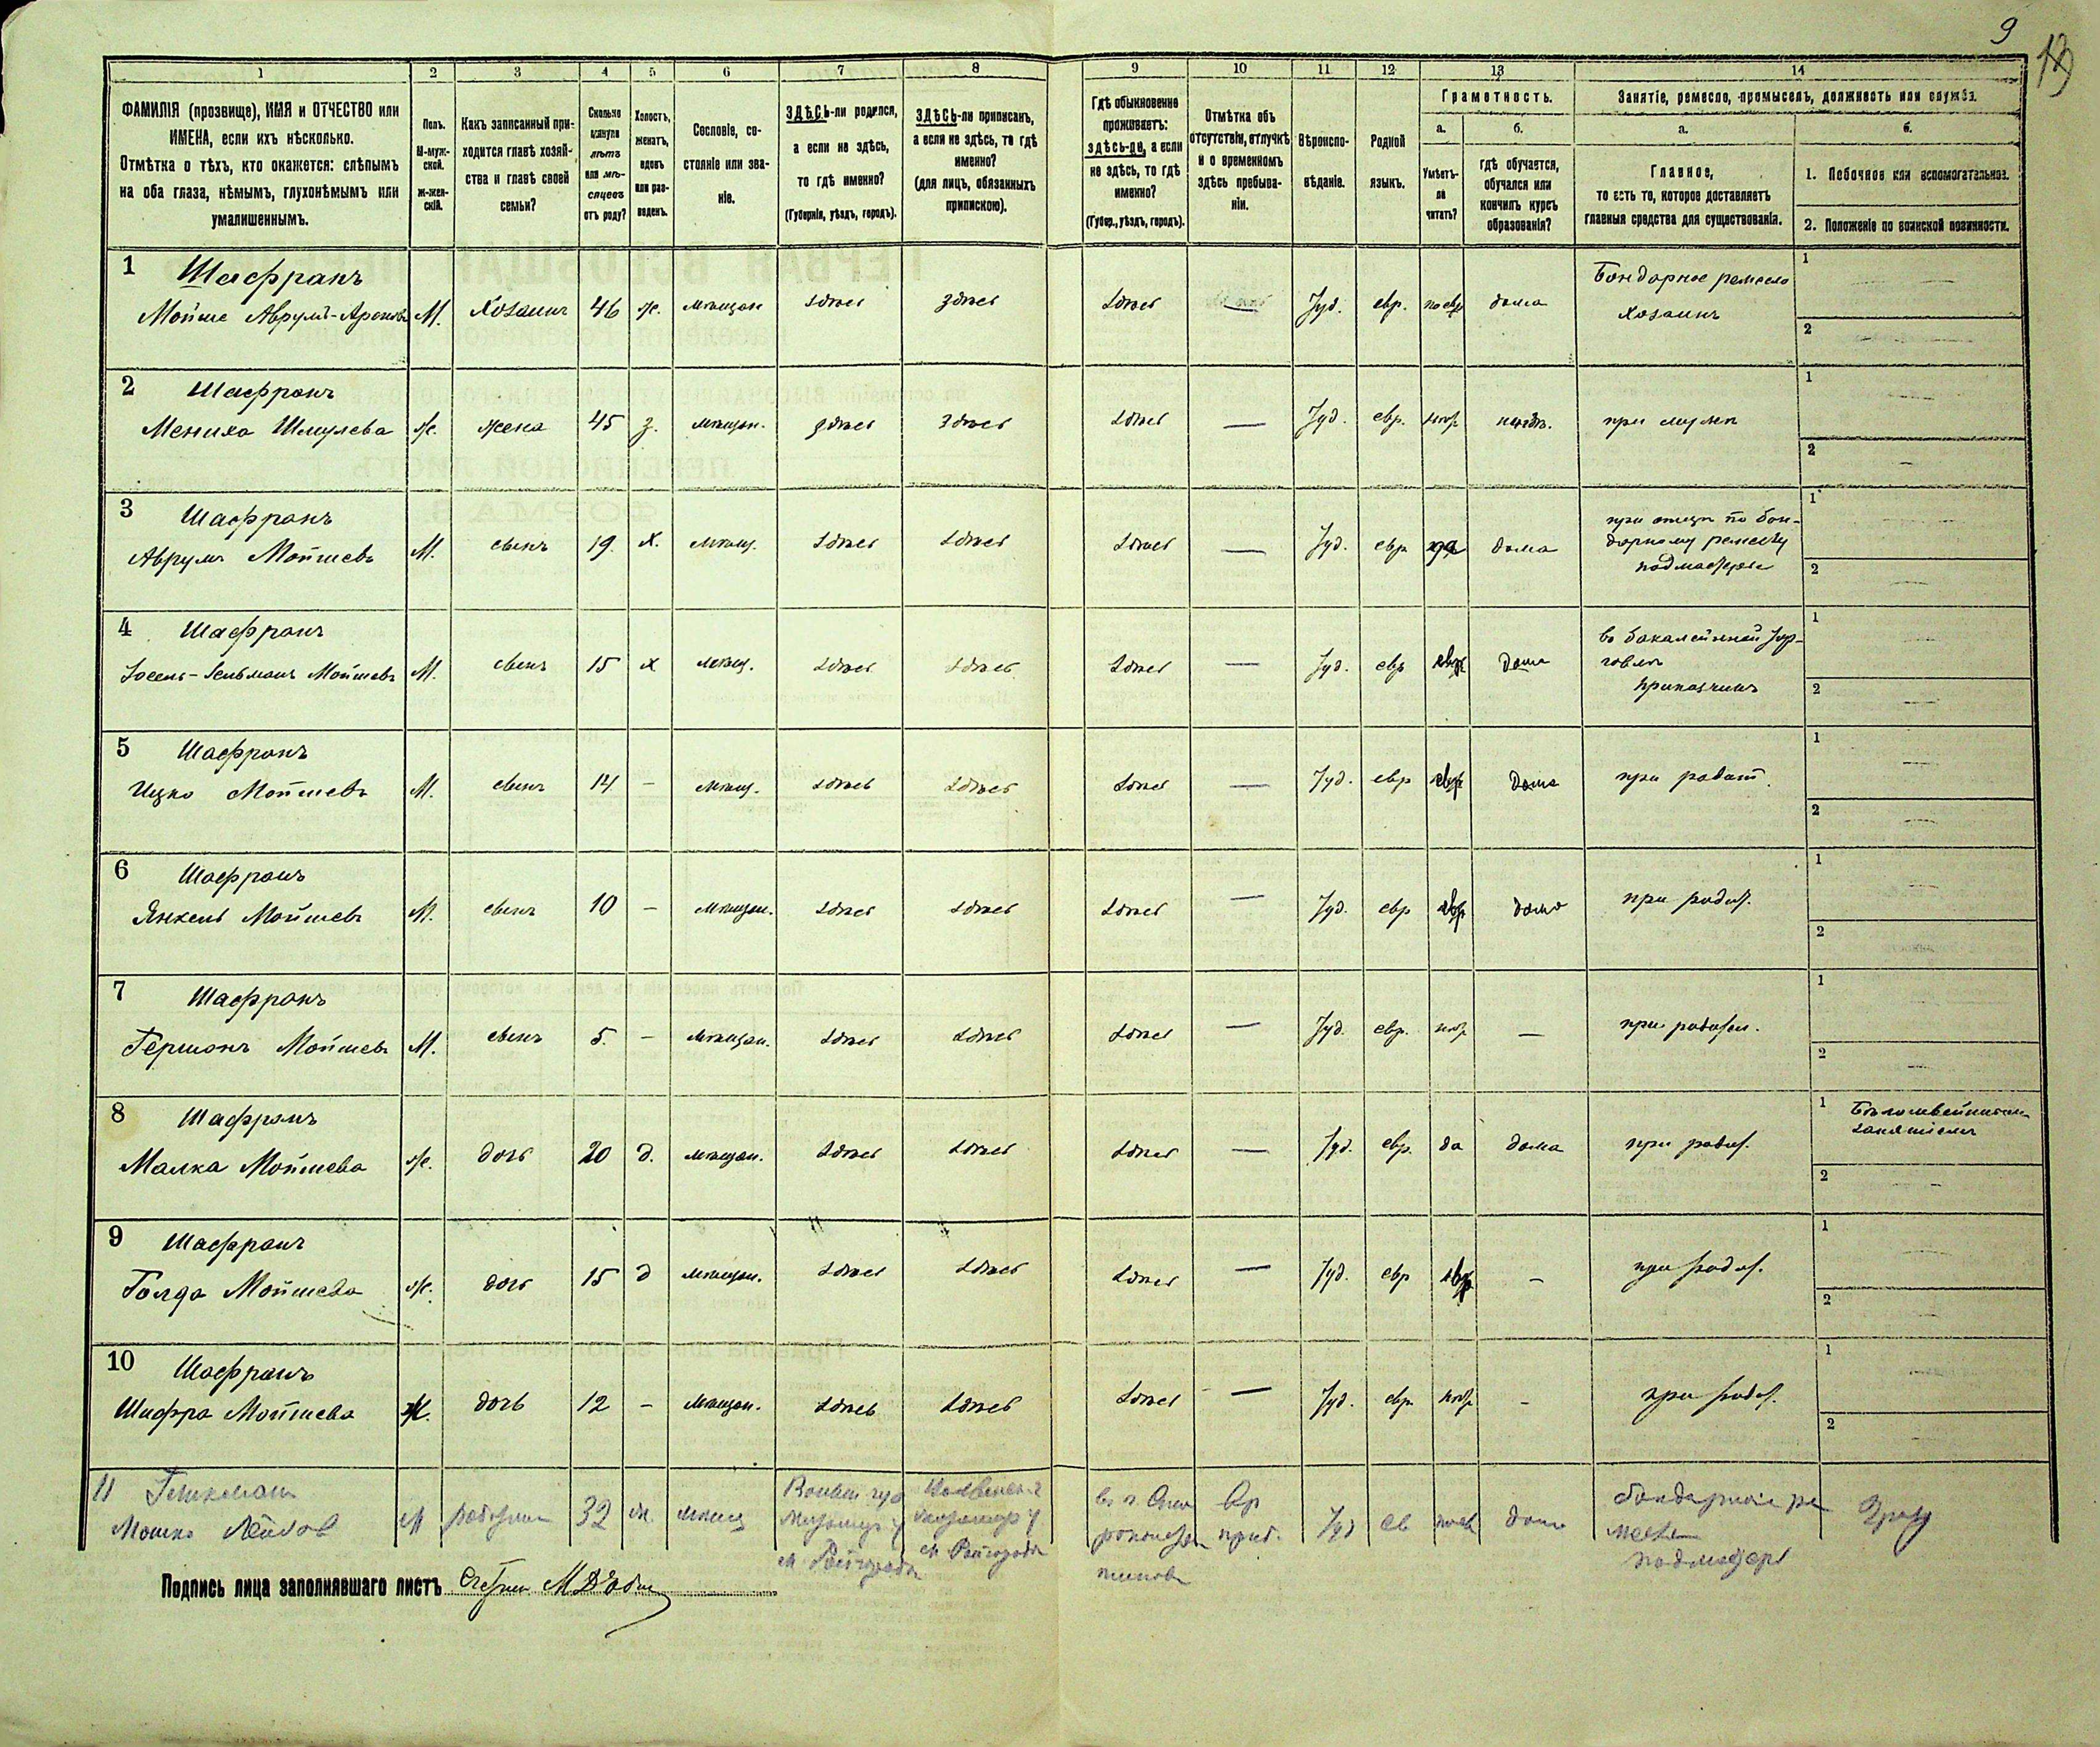 9
13
1 2 3 4 5 6 7 8 9 10 11 12 13 14
ФАМИЛІЯ (прозвище), ИМЯ и ОТЧЕСТВО или ИМЕНА, если ихъ нѣсколько.
Отмѣтка о тѣхъ, кто окажется: слѣпымъ на оба глаза, нѣмымъ, глухонѣмымъ или умалишеннымъ.
Полъ. М-мужской. Ж-женскій.
Какъ записанный приходится главѣ хозяйства и главѣ своей семьи?
Сколько минуло лѣтъ или мѣсяцевъ отъ роду?
Холостъ, женатъ, вдовъ или разведенъ.
Сословіе, состояніе или званіе.
ЗДѢСЬ-ли родился, а если не здѣсь, то гдѣ именно? (Губернія, уѣздъ, городъ).
ЗДѢСЬ-ли приписанъ, а если не здѣсь, то гдѣ именно? (для лицъ, обязанныхъ припискою).
Гдѣ обыкновенно проживаетъ: здѣсь-ли, а если не здѣсь, то гдѣ именно? (Губер., уѣздъ, городъ).
Отмѣтка объ отсутствіи, отлучкѣ и о временномъ здѣсь пребываніи.
Вѣроисповѣданіе.
Родной языкъ.
Грамотность.
а. Умѣетъ-ли читать?
б. гдѣ обучается, обучался или кончилъ курсъ образованія?
Занятіе, ремесло, промыселъ, должность или служба.
а. Главное, то есть то, которое доставляетъ главныя средства для существованія.
б.
1. Побочное или вспомогательное.
2. Положеніе по воинской повинности.
1 Шафранъ
Мойше Аврумъ-Ароновъ М. Хозяинъ 46 ж. мѣщан здѣсь здѣсь здѣсь — Іуд. евр. по евр дома Бондарное ремесло Хозяинъ 1 — 2 —
2 Шафранъ
Мениха Шмулева ж. жена 45 з. мѣщан. здѣсь здѣсь здѣсь — Іуд. евр. при мужѣ 1 2 —
3 Шафранъ
Аврумъ Мойшевъ М. сынъ 19 х. мѣщ. здѣсь здѣсь здѣсь — Іуд. евр да дома при отцѣ по бондарному ремеслу подмастерье 1 — 2 —
4 Шафранъ
Іосель-Зельманъ Мойшевъ М. сынъ 15 х мѣщ. здѣсь здѣсь здѣсь — Іуд. евр евр дома въ бакалейной торговлѣ приказчикъ 1 — 2 —
5 Шафранъ
Ицко Мойшевъ М. сынъ 14 — мѣщ. здѣсь здѣсь здѣсь — Іуд. евр евр дома при родит. 1 — 2 —
6 Шафранъ
Янкель Мойшевъ М. сынъ 10 — мѣщан. здѣсь здѣсь здѣсь — Іуд. евр евр дома при родит. 1 — 2
7 Шафранъ
Гершонъ Мойшевъ М. сынъ 5. — мѣщан. здѣсь здѣсь здѣсь — Іуд. евр. — при родител. 1 2 —
8 Шафранъ
Малка Мойшева ж. дочь 20 д. мѣщан. здѣсь здѣсь здѣсь — Іуд. евр. да дома при родит. 1 2 —
9 Шафранъ
Голда Мойшева ж. дочь 15 д мѣщан. здѣсь здѣсь здѣсь — Іуд. евр евр — при родит. 1 — 2 —
10 Шафранъ
Шифра Мойшева Ж. дочь 12 — мѣщан. здѣсь здѣсь здѣсь — Іуд. евр — при родит. 1 — 2
11
Мошко Лейбов М 32 ж. мѣщ Іуд ев дома бондарное ремесло подмастерь
Подпись лица заполнявшаго листъ